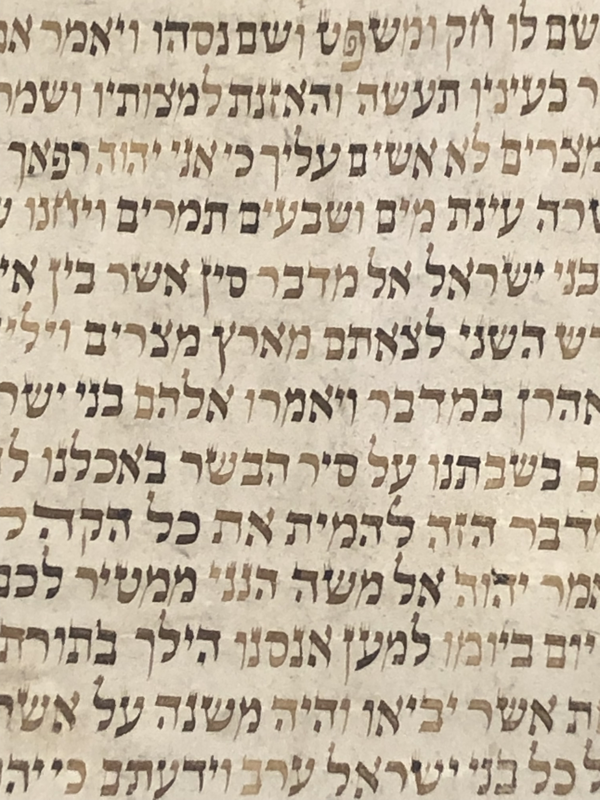 שם לו חק ומשפט ושם נסהו ויאמר אם
ר בעיניו תעשה והאזנת למצותיו ושמר
מצרים לא אשים עליך כי אני יהוה רפאך
שרה עינת מים ושבעים תמרים ויחנו ש
בני ישראל אל מדבר סין אשר בין אי
דש השני לצאתם מארץ מצרים וילי
אהרן במדבר ויאמרו אלהם בני ישר
ם בשבתנו על סיר הבשר באכלנו ל
מדבר הזה להמית את כל הקהל
אמר יהוה אל משה הנני ממטיר לכם
יום ביומו למען אנסנו הילך בתורת
את אשר יביאו והיה משנה על אשר
ל כל בני ישראל ערב וידעתם כי יהו